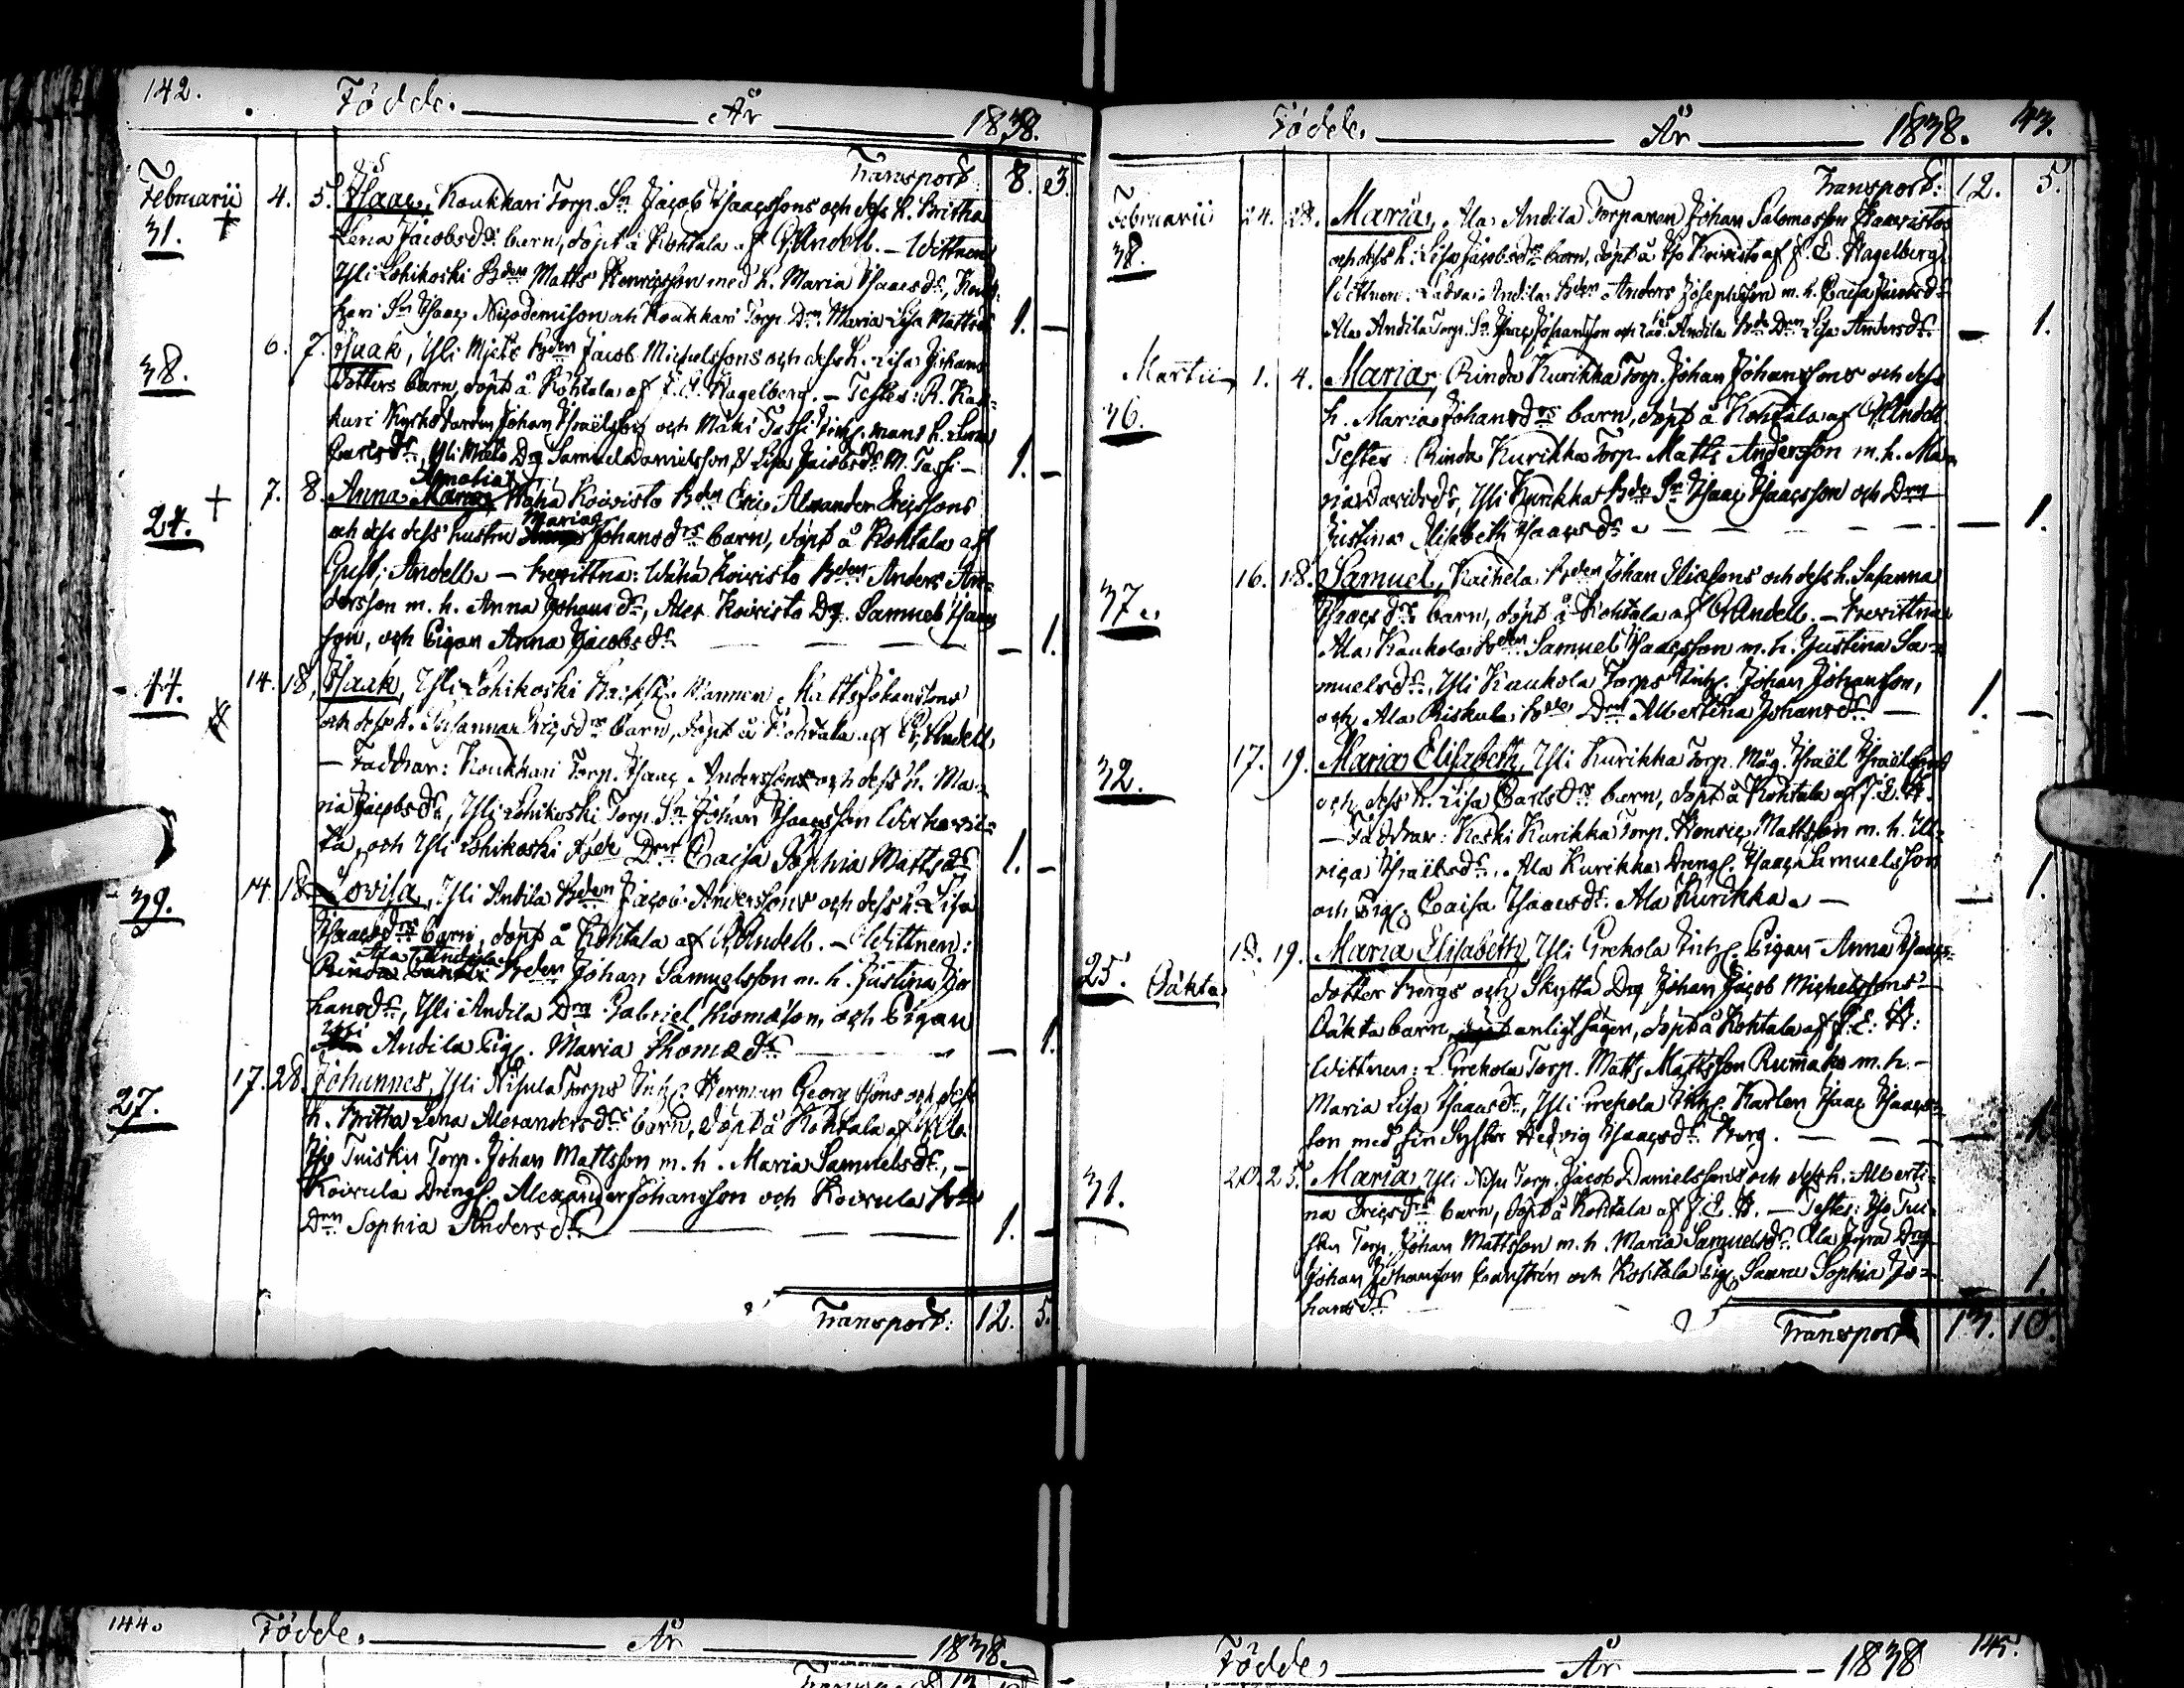 142. Födde. År 1838.
Transport 8. 3.
Februarii 4. 5. Isaac, Koukkari Torp. Sn Jacob Isaacssons och dess h. Britha
31. + Lena Jacobsdrs barn, döpt å Kohtala af G. Andell. – Wittnen
Yli Lohikoski Bden Matts Henricsson med h. Maria Isaacsdr, Kouk-
kari Sn Isaac Nicodemison och Koukkari Torp. Drn Maria Lisa Mattsdr 1. –
6. 7. Isaak, Yli Bden Jacob Michelssons och dess h. Lisa Johans
38. dotters barn, döpt å Kohtala af J. E. Hagelberg. – Testes: R. Kas-
kuri Kyrko Johan Israëlsson och Mäki Tassi Inh. mans h. Lena
Carlsdr, Yli Drg Samuel Danielsson & Lisa Jacobsdr M. Tassi – 1. –
Amalia
7. 8. Anna Maria, Wähä Koivisto Bden Eric Alexander Ericssons
24. + och dess dess hustru Maria Johansdrs barn, döpt å Kohtala af
Gust. Andell. – Trovittna: Wähä Koivisto Bden Anders An-
dersson m. h. Anna Johansdr, Koivisto Dg. Samuel Isaacs
son, och Pigan Anna Jacobsdr – 1.
14. 18. Isaak, Yli Lohikoski Mannen Matts Johanssons
44. och dess h. Susanna Ericsdrs barn, döpt å Kohtala af G. Andell,
– Faddrar: Koukkari Torp. Isaac Anderssons och dess h. Ma-
ria Jacobsdr, Yli Lohikoski Torp. Sn Johan Isaacsson
ta, och Yli Lohikoski Bde Drn Caisa Sophia Mattsdr 1. –
14. 18. Lovisa, Yli Andila Bden Jacob Anderssons och dess h. Lisa
39. Isaacsdrs barn, döpt å Kohtala af G. Andell. – Wittnen:
Ala Andila
Bden Johan Samuelsson m. h. Justina Jo-
hansdr, Yli Andila Drg Gabriel Thomason, och Pigan
Yli
Andila Pig. Maria Thomædr – 1.
17. 28. Johannes, Yli Nisula Torps Inh. Herman Georg ssons och dess
27. h. Britha Lena Alexandersdrs barn, döpt å Kohtala af
Iso Tuisku Torp. Johan Mattsson m. h. Maria Samuelsdr, –
Koivula Dreng. Alexander Johansson och Koivula Bde
Drn Sophia Andersdr 1. –
Transport: 12. 5.
Födde. År 1838. 143.
Transport: 12. 5.
Februarii 24. 28. Maria, Ala Andila Torparen Johan Salomosson Haavistos
38. och dess h: Lisa Jacobsdrs barn, döpt å Iso Koivisto af J. E. Hagelberg
Wittnen: Ladvai Andila Bden Anders Josephsson m. h. Caisa Jacobsdr
Ala Andila Torp. Sn Isaac Johansson och Lad. Andila Bde Drn Lisa Andersdr – 1.
Martii 1. 4. Maria, Rinda Kurikka Torp. Johan Johanssons och dess
36. h. Maria Johansdrs barn, döpt å Kohtala af G. Andell
Testes: Rinda Kurikka Torp. Matts Andersson m. h. Ma-
ria Davidsdr, Yli Kurikka Bde Sn Isaac Isaacsson och Drn
Justina Elisabeth Isaacsdr – 1.
16. 18. Samuel, Kaihela Bden Johan Eliæsons och dess h. Susanna
37. Isaacsdrs barn, döpt å Kohtala af G. Andell. – Trovittna
Ala Kauhola Bden Samuel Isaacsson m. h. Justina Sa-
muelsdr, Yli Kauhola Torps Inh. Johan Johansson,
och Ala Riskula Bde Drn Albertina Johansdr – 1. –
17. 19. Maria Elisabeth, Yli Kurikka Torp. Måg. Israël Israëlssons
32. och dess h. Lisa Carlsdrs barn, döpt å Kohtala af J. E. H.
– Faddrar: Keski Kurikka Torp. Henric Mattsson m. h. Ul-
rica Israëlsdr, Ala Kurikka Dreng. Isaac Samuelsson
och Pig. Caisa Isaacsdr Ala Kurikka – 1.
18. 19. Maria Elisabeth, Yli Grekola Inh. Pigan Anna Isaacs-
25. Oäkta dotter Bergs och Skyttä Drg Johan Jacob Michelssons
Oäkta barn enligt sägen, döpt å Kohtala af J. E. H:
Wittnen: L. Grekola Torp. Matts Mattsson Rummako m. h. –
Maria Lisa Isaacsdr, Yli Grekola Inh. Karlen Isaac Isaacs-
son med sin Syster Hedvig Isaacsdr Berg. – 1.
20. 25. Maria, Yli Nisu Torp. Jacob Danielssons och dess h. Alberti-
31. na Ericsdrs barn, döpt å Kohtala af J. E. H. – Testes: Iso Tui-
sku Torp. Johan Mattsson m. h. Maria Samuelsdr. Ala Drg
Johan Johansson och Kohtala Pig. Sophia Jo-
hansdr – 1.
Transport 13. 10.
144. Födde. År 1838.
Födde År 1838 145.